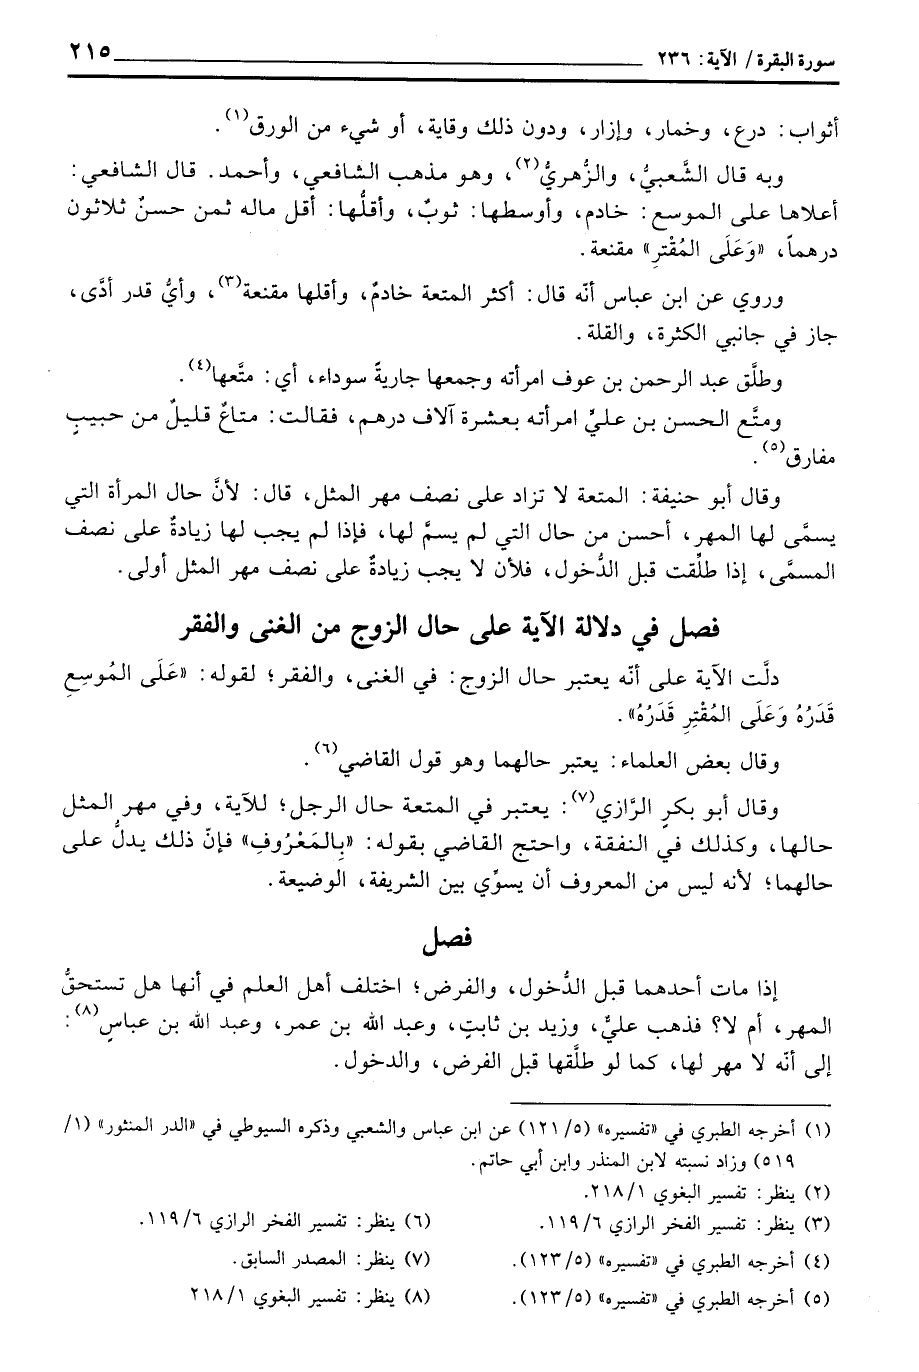 سورة البقرة/ الآية: ٢٣٦ ٢١٥
أثواب: درع، وخمار، وإزار، ودون ذلك وقاية، أو شيء من الورق(١).
وبه قال الشَّعبيُّ، والزُّهريُّ(٢)، وهو مذهب الشافعي، وأحمد. قال الشافعي:
أعلاها على الموسع: خادم، وأوسطها: ثوبٌ، وأقلُّها: أقل ماله ثمن حسنٌ ثلاثون
درهماً، «وَعَلَى المُقْتِرِ» مقنعة.
وروي عن ابن عباس أنَّه قال: أكثر المتعة خادمٌ، وأقلها مقنعة(٣)، وأيُّ قدر أدَّى،
جاز في جانبي الكثرة، والقلة.
وطلَّق عبد الرحمن بن عوف امرأته وجمعها جاريةً سوداء، أي: متَّعها(٤).
ومتَّع الحسن بن عليٍّ امرأته بعشرة آلاف درهم، فقالت: متاعٌ قليلٌ من حبيبٍ
مفارق(٥).
وقال أبو حنيفة: المتعة لا تزاد على نصف مهر المثل، قال: لأنَّ حال المرأة التي
يسمَّى لها المهر، أحسن من حال التي لم يسمَّ لها، فإذا لم يجب لها زيادةٌ على نصف
المسمَّى، إذا طلِّقت قبل الدُّخول، فلأن لا يجب زيادةٌ على نصف مهر المثل أولى.
فصل في دلالة الآية على حال الزوج من الغنى والفقر
دلَّت الآية على أنَّه يعتبر حال الزوج: في الغنى، والفقر؛ لقوله: «عَلَى المُوسِعِ
قَدَرُهُ وَعَلَى المُقْتِرِ قَدَرُهُ».
وقال بعض العلماء: يعتبر حالهما وهو قول القاضي(٦).
وقال أبو بكرٍ الرَّازي(٧): يعتبر في المتعة حال الرجل؛ للآية، وفي مهر المثل
حالها، وكذلك في النفقة، واحتج القاضي بقوله: «بِالمَعْرُوفِ» فإنّ ذلك يدلُّ على
حالهما؛ لأنه ليس من المعروف أن يسوِّي بين الشريفة، الوضيعة.
فصل
إذا مات أحدهما قبل الدُّخول، والفرض؛ اختلف أهل العلم في أنها هل تستحقُّ
المهر، أم لا؟ فذهب عليٌّ، وزيد بن ثابتٍ، وعبد الله بن عمر، وعبد الله بن عباسٍ(٨):
إلى أنَّه لا مهر لها، كما لو طلَّقها قبل الفرض، والدخول.
(١) أخرجه الطبري في «تفسيره» (٥/ ١٢١) عن ابن عباس والشعبي وذكره السيوطي في «الدر المنثور» (١/
٥١٩) وزاد نسبته لابن المنذر وابن أبي حاتم.
(٢) ينظر: تفسير البغوي ١/ ٢١٨.
(٣) ينظر: تفسير الفخر الرازي ٦/ ١١٩. (٦) ينظر: تفسير الفخر الرازي ٦/ ١١٩.
(٤) أخرجه الطبري في «تفسيره» (٥/ ١٢٣). (٧) ينظر: المصدر السابق.
(٥) أخرجه الطبري في «تفسيره» (٥/ ١٢٣). (٨) ينظر: تفسير البغوي ١/ ٢١٨